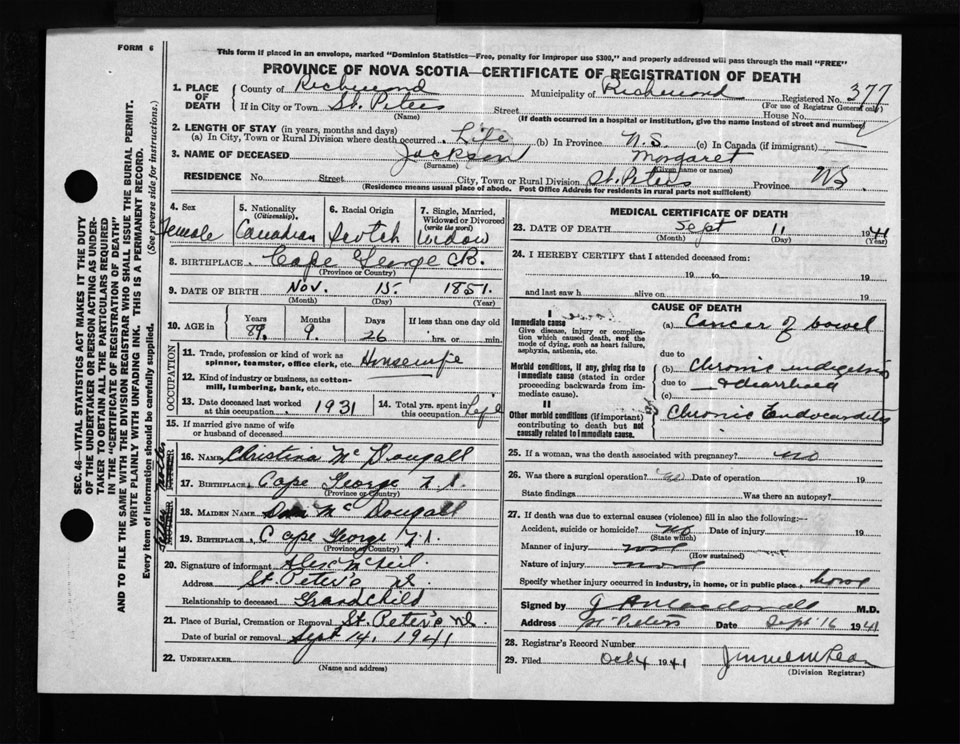 FORM 6
This form if placed in an envelope, marked "Dominion Statistics—Free, penalty for improper use $300," and properly addressed will pass through the mail "FREE"
PROVINCE OF NOVA SCOTIA—CERTIFICATE OF REGISTRATION OF DEATH
1. PLACE OF DEATH
County of Richmond Municipality of Richmond Registered No. 377
(For use of Registrar General only)
If in City or Town St. Peters Street House No.
(Name) (If death occurred in a hospital or institution, give the name instead of street and number)
2. LENGTH OF STAY (in years, months and days)
(a) In City, Town or Rural Division where death occurred Life (b) In Province N.S. (c) In Canada (if immigrant) —
3. NAME OF DECEASED Jackson Margaret
(Surname) (Given name or names)
RESIDENCE No. Street City, Town or Rural Division St. Peters Province N.S.
(Residence means usual place of abode. Post Office Address for residents in rural parts not sufficient)
4. Sex Female
5. Nationality (Citizenship) Canadian
6. Racial Origin Scotch
7. Single, Married, Widowed or Divorced (write the word) Widow
8. BIRTHPLACE Cape George C.B.
(Province or Country)
9. DATE OF BIRTH Nov. 15. 1851.
(Month) (Day) (Year)
10. AGE in Years 89 Months 9 Days 26 If less than one day old hrs. or min.
OCCUPATION
11. Trade, profession or kind of work as spinner, teamster, office clerk, etc. Housewife
12. Kind of industry or business, as cotton-mill, lumbering, bank, etc.
13. Date deceased last worked at this occupation 1931
14. Total yrs. spent in this occupation Life
15. If married give name of wife or husband of deceased
16. NAME Christina McDougall
17. BIRTHPLACE Cape George N.S.
(Province or Country)
18. MAIDEN NAME McDougall
19. BIRTHPLACE Cape George N.S.
(Province or Country)
20. Signature of informant Alex McNeil
Address St. Peter's N.S.
Relationship to deceased Grandchild
21. Place of Burial, Cremation or Removal St. Peter's N.S.
Date of burial or removal Sept 14, 1941
22. UNDERTAKER
(Name and address)
MEDICAL CERTIFICATE OF DEATH
23. DATE OF DEATH Sept 11 1941
(Month) (Day) (Year)
24. I HEREBY CERTIFY that I attended deceased from:
19 to 19
and last saw h alive on 19
CAUSE OF DEATH
I
Immediate cause
Give disease, injury or complication which caused death, not the mode of dying, such as heart failure, asphyxia, asthenia, etc.
(a) Cancer of bowel
due to
Morbid conditions, if any, giving rise to immediate cause (stated in order proceeding backwards from immediate cause).
(b) Chronic indigestion
due to & diarrhoea
(c)
II
Other morbid conditions (if important) contributing to death but not causally related to immediate cause.
Chronic Endocarditis
25. If a woman, was the death associated with pregnancy? no
26. Was there a surgical operation? no Date of operation 19
State findings Was there an autopsy?
27. If death was due to external causes (violence) fill in also the following:—
Accident, suicide or homicide? no Date of injury 19
(State which)
Manner of injury
(How sustained)
Nature of injury
Specify whether injury occurred in industry, in home, or in public place
Signed by J A Macdonald M.D.
Address St Peters Date Sept 16 1941
28. Registrar's Record Number
29. Filed Oct 4 1941
(Division Registrar)
SEC. 46—VITAL STATISTICS ACT MAKES IT THE DUTY OF THE UNDERTAKER OR PERSON ACTING AS UNDERTAKER TO OBTAIN ALL THE PARTICULARS REQUIRED IN THE "CERTIFICATE OF REGISTRATION OF DEATH" AND TO FILE THE SAME WITH THE DIVISION REGISTRAR WHO SHALL ISSUE THE BURIAL PERMIT.
WRITE PLAINLY WITH UNFADING INK. THIS IS A PERMANENT RECORD.
Every item of information should be carefully supplied. (See reverse side for instructions.)